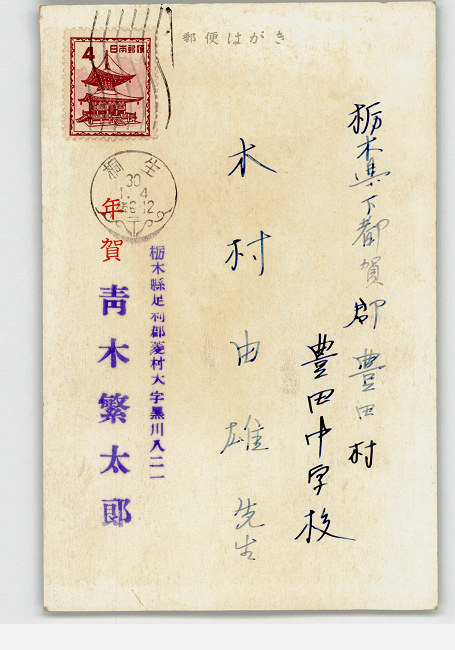 郵便はがき
4
日本郵便
桐生
30
1. 4
年賀
栃木県下都賀郡豊田村
豊田中学校
木村由雄先生
栃木縣足利郡菱村大字黒川八二一
青木繁太郎